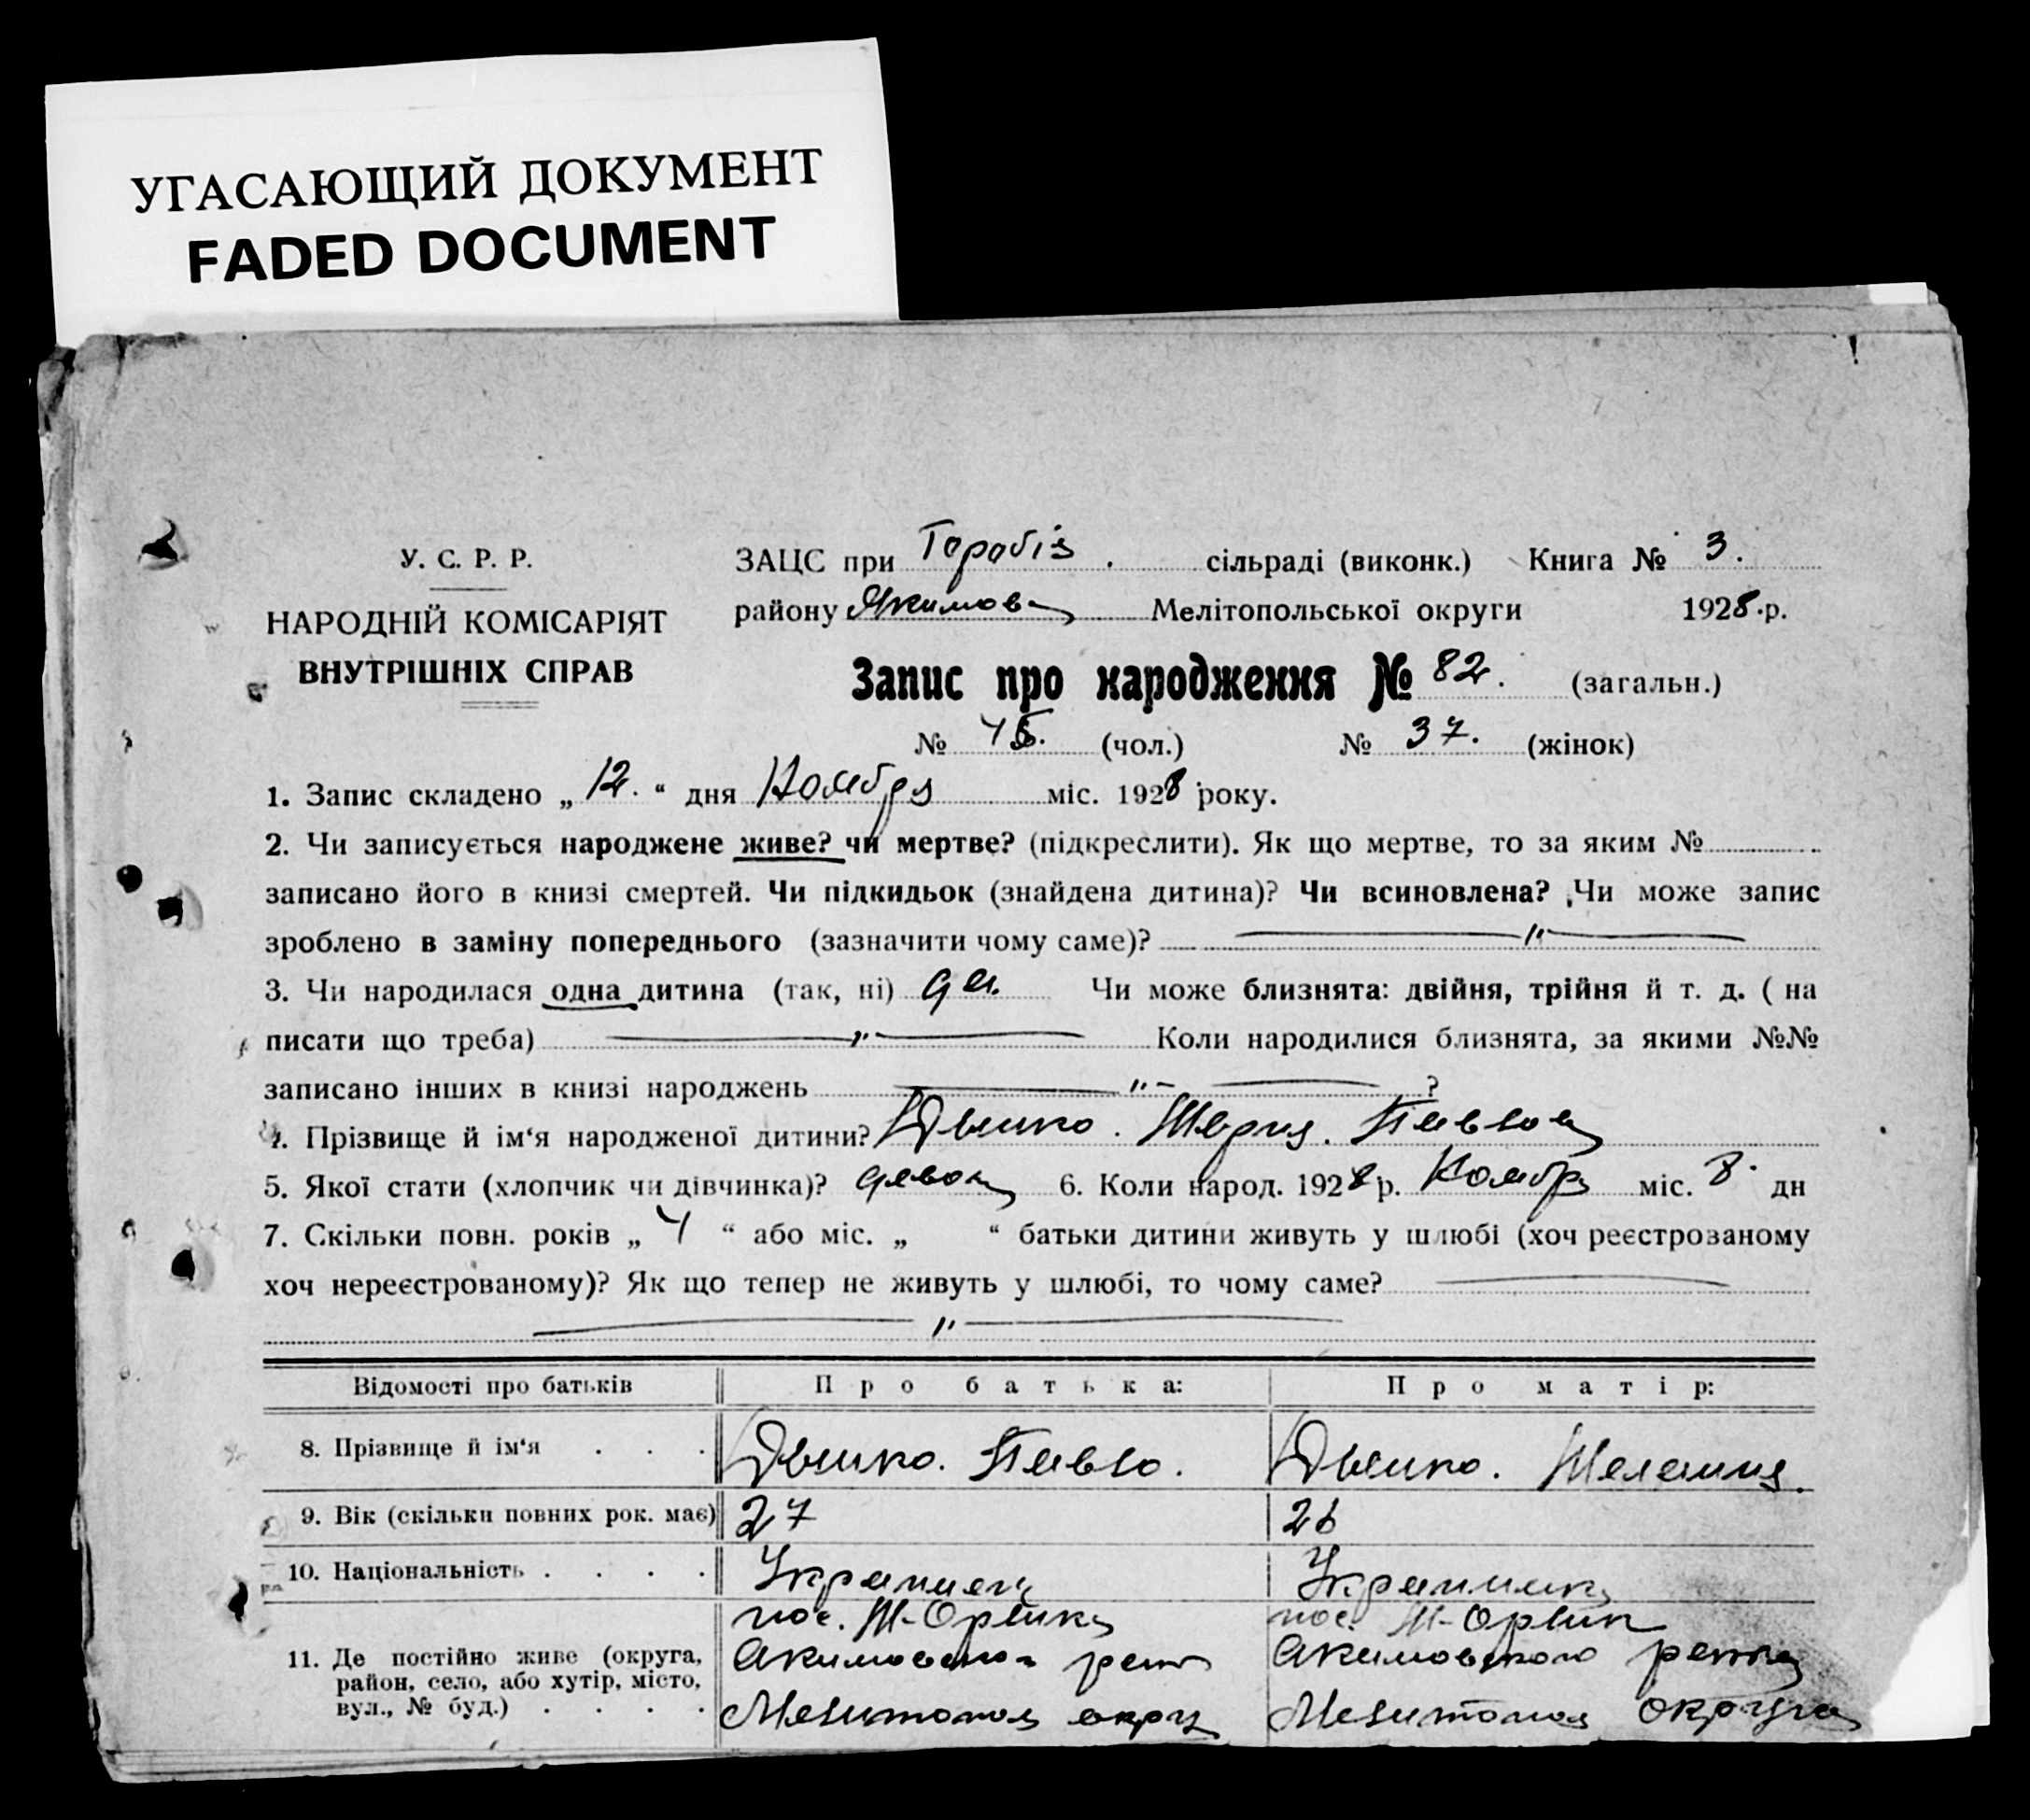 УГАСАЮЩИЙ ДОКУМЕНТ
FADED DOCUMENT
У. С. Р. Р.
НАРОДНІЙ КОМІСАРІЯТ
ВНУТРІШНІХ СПРАВ
ЗАЦС при сільраді (виконк.) Книга № 3.
району Якимовс Мелітопольської округи 1928.р.
Запис про народження № 82. (загальн.)
№ 45. (чол.) № 37. (жінок)
1. Запис складено „ 12. “ дня Ноября міс. 1928 року.
2. Чи записується народжене живе? чи мертве? (підкреслити). Як що мертве, то за яким №
записано його в книзі смертей. Чи підкидьок (знайдена дитина)? Чи всиновлена? Чи може запис
зроблено в заміну попереднього (зазначити чому саме)? — „ —
3. Чи народилася одна дитина (так, ні) да. Чи може близнята: двійня, трійня й т. д. ( на
писати що треба) — „ — Коли народилися близнята, за якими №№
записано інших в книзі народжень — „ — ?
4. Прізвище й ім‘я народженої дитини? Дышко. Мария. Павлов
5. Якої стати (хлопчик чи дівчинка)? девоч 6. Коли народ. 1928 р. Ноябр міс. 8. дн
7. Скільки повн. років „ 4 “ або міс. „ “ батьки дитини живуть у шлюбі (хоч реєстрованому
хоч нереєстрованому)? Як що тепер не живуть у шлюбі, то чому саме? —
— „ —
Відомості про батьків Про батька: Про матір:
8. Прізвище й ім‘я . . . Дышко. Павло. Дышко. Мелания.
9. Вік (скільки повних рок. має) 27 26
10. Національність . . . . Украинец Украинка
пос. М-Орлик пос. М-Орлик
11. Де постійно живе (округа, Акимовского Акимовского района
район, село, або хутір, місто,
вул., № буд.) . . . . Мелитопол округ Мелитопол округа